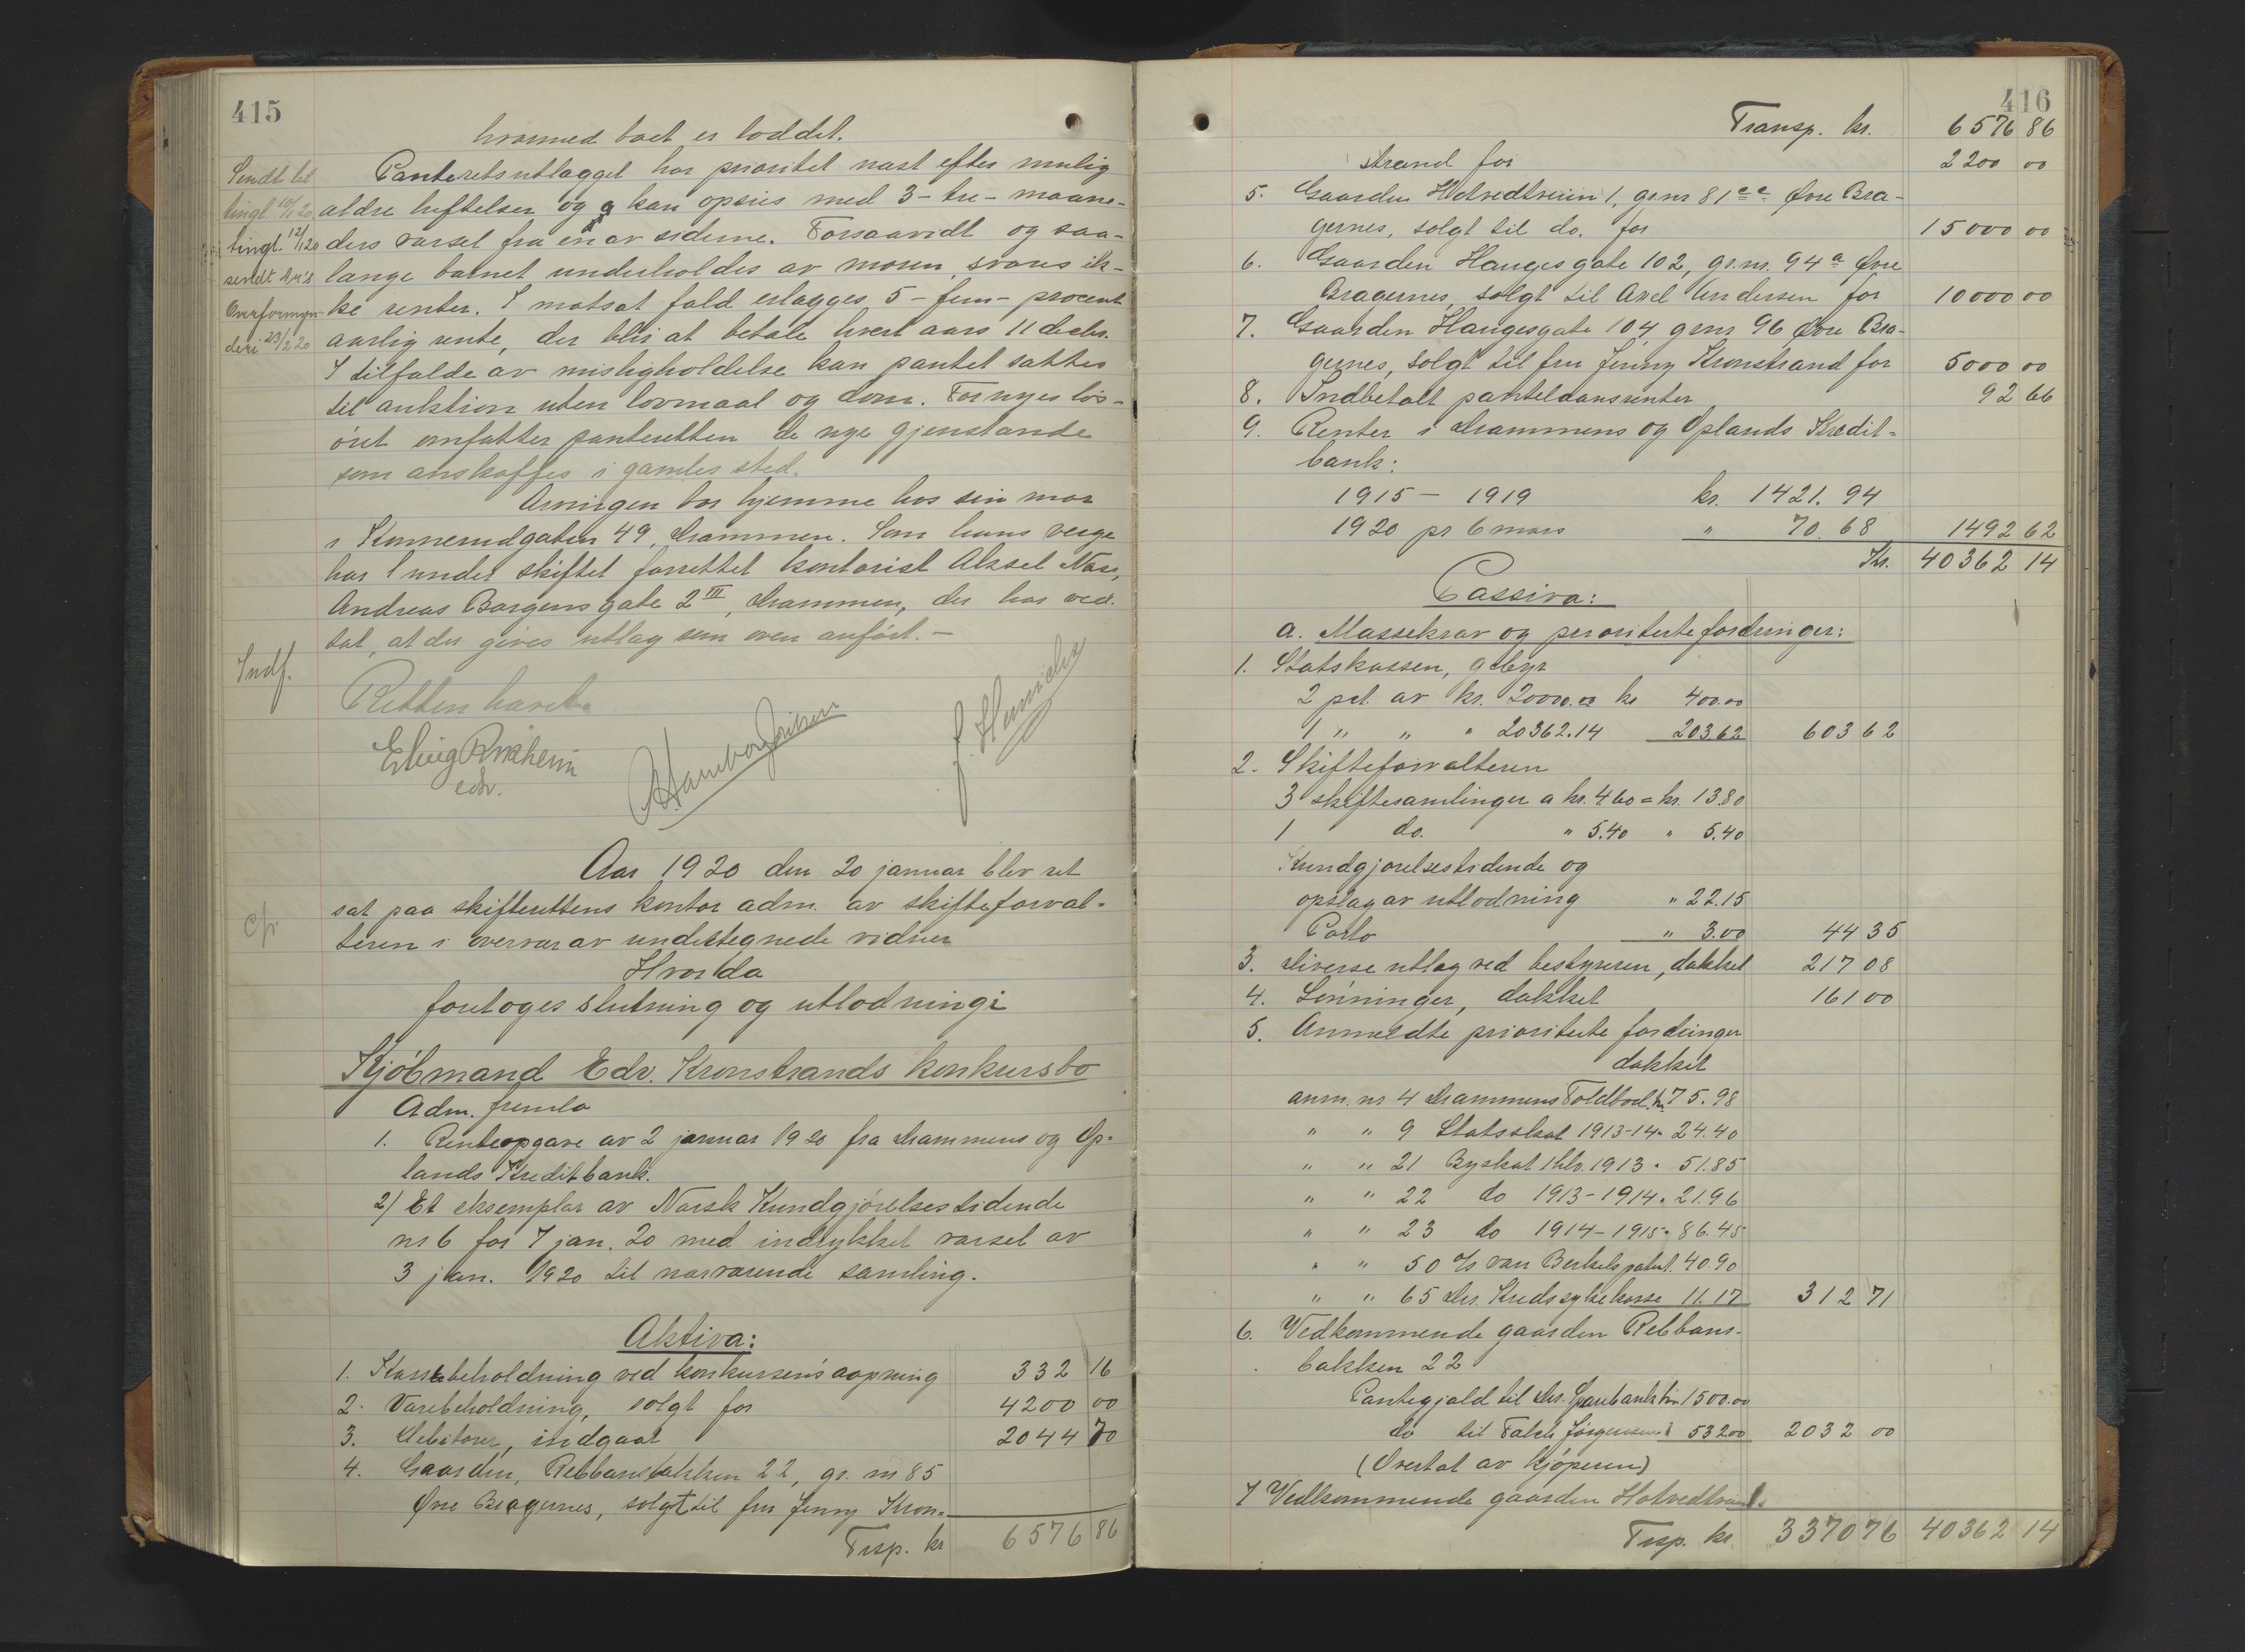 415
hvormed boet er loddet.
Panteretsutlægget har prioritet næst efter mulig
ældre heftelser og kan opsies med 3-tre-maane-
ders varsel fra en av siderne. Forsaavidt og saa-
længe barnet underholdes av moren, svares ik-
ke renter. I motsat fald erlægges 5-fem-procent
aarlig rente, der blir at betale hvert aars 11 decbr.
I tilfælde av misligholdelse kan pantet sættes
til auktion uten lovmaal og dom. Fornyes løs-
øret omfatter panteretten de nye gjenstande
som anskaffes i gamles sted.
Arvingen bor hjemme hos sin mor
i Konnerudgaten 49, Drammen. Som hans verge
har under skiftet forrettet kontorist Aksel Næss,
Andreas Borgens gate 2 III, Drammen, der har ved-
tat, at der gives utlæg som oven anført.-
Sendt til
tingl. 10/1 20
tingl. 12/1 20
sendt Dr's
Overformyn-
deri 23/2 20
Indf.
Retten hævet.
Aar 1920 den 20 januar blev ret
sat paa skifterettens kontor adm. av skifteforval-
teren i overvær av undertegnede vidner
Hvorda
foretoges slutning og utlodning i
Kjøbmand Edv. Kronstrands konkursbo
Adm. fremla
1. Renteopgave av 2 januar 1920 fra Drammens og Op-
lands Kreditbank.
2) Et eksemplar av Norsk Kundgjørelsestidende
nr 6 for 7 jan. 20 med indrykket varsel av
3 jan. 1920 til nærværende samling.
Aktiva:
1. Kassebeholdning ved konkursens aapning 332 16
2. Varebeholdning, solgt for 4200 00
3. Debitorer, indgaat 2044 70
4. Gaarden, Rebbansbakken 22, gr. nr 85
Øvre Bragernes, solgt til fru Jenny Kron-
Trsp. kr 6576 86
416
Transp. kr. 6576 86
strand for 2200 00
5. Gaarden Hotvedtveien 1, gr nr 81 Øvre Bra-
gernes, solgt til do. for 15000 00
6. Gaarden Hauges gate 102, gr. nr. 94a Øvre
Bragernes, solgt til Axel Andersen for 10000 00
7. Gaarden Haugesgate 104, gr nr 96 Øvre Bra-
gernes, solgt til fru Jenny Kronstrand for 5000 00
8. Indbetalt panteldansrenter 92 66
9. Renter i Drammens og Oplands Kredit-
bank:
1915 - 1919 kr. 1421. 94
1920 pr 6 mars " 70. 68 1492 62
Kr. 40362 14
Passiva:
a. Massekrav og prioriterte fordringer:
1. Statskassen, gebyr
2 pct. av kr. 20000.00 kr 400.00
1 " " " 20362.14 203.62 603 62
2. Skifteforvalteren
3 skiftesamlinger a kr. 4.60 = kr. 13.80
1 do. " 5.40 " 5.40
Kundgjørelsestidende og
opslag av utlodning " 22.15
Porto " 3.00 44 35
3. Diverse utlæg ved bestyreren, dækket 217 08
4. Lønninger, dækket 161 00
5. Anmeldte prioriterte fordringer
dækket
anm. nr 4 Drammens Toldbod kr. 75.98
" " 9 Statsskat 1913-14 " 24.40
" " 21 Byskat 1 hlv. 1913 " 51.85
" " 22 do 1913-1914 " 21.96
" " 23 do 1914-1915 " 86.45
" " 50 A/S van Berkels patent. 40.90
" " 65 Dr. Kredssykekasse 11.17 312 71
6. Vedkommende gaarden Rebbans-
bakken 22
Pantegjæld til Dr. Sparebank kr. 1500.00
do til Falck Jørgensen " 532.00 2032 00
(Overtat av kjøperen)
7 Vedkommende gaarden Hotvedtvei 1.
Trsp. kr. 3370 76 40362 14